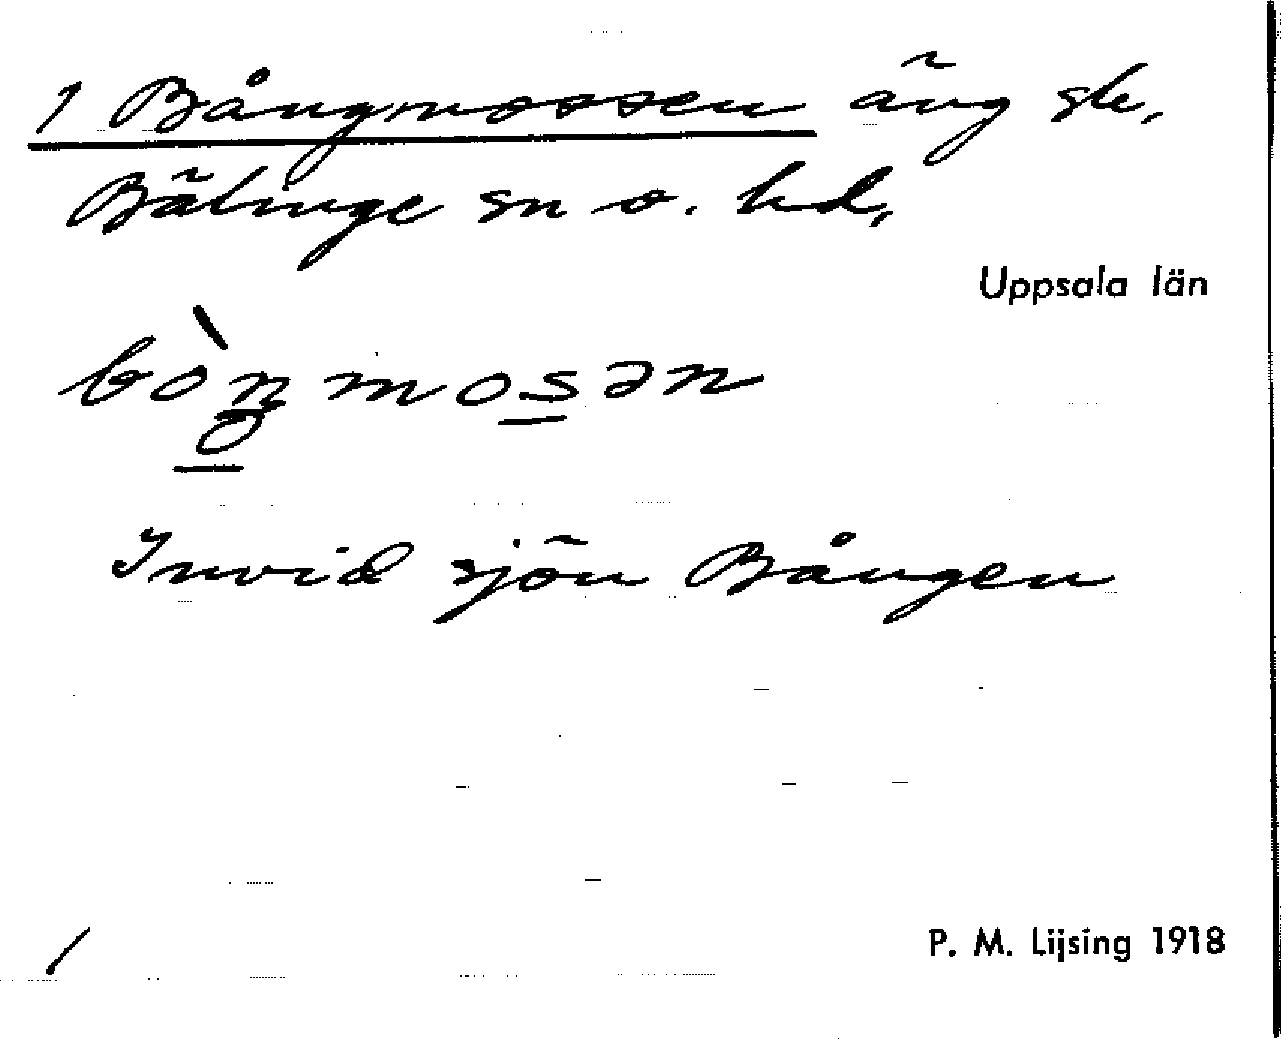 1 Bångmossen äng sk.
Bälinge sn o. hd,
Uppsala län
bòŋmosən
Invid sjön Bången
/
P. M. Lijsing 1918